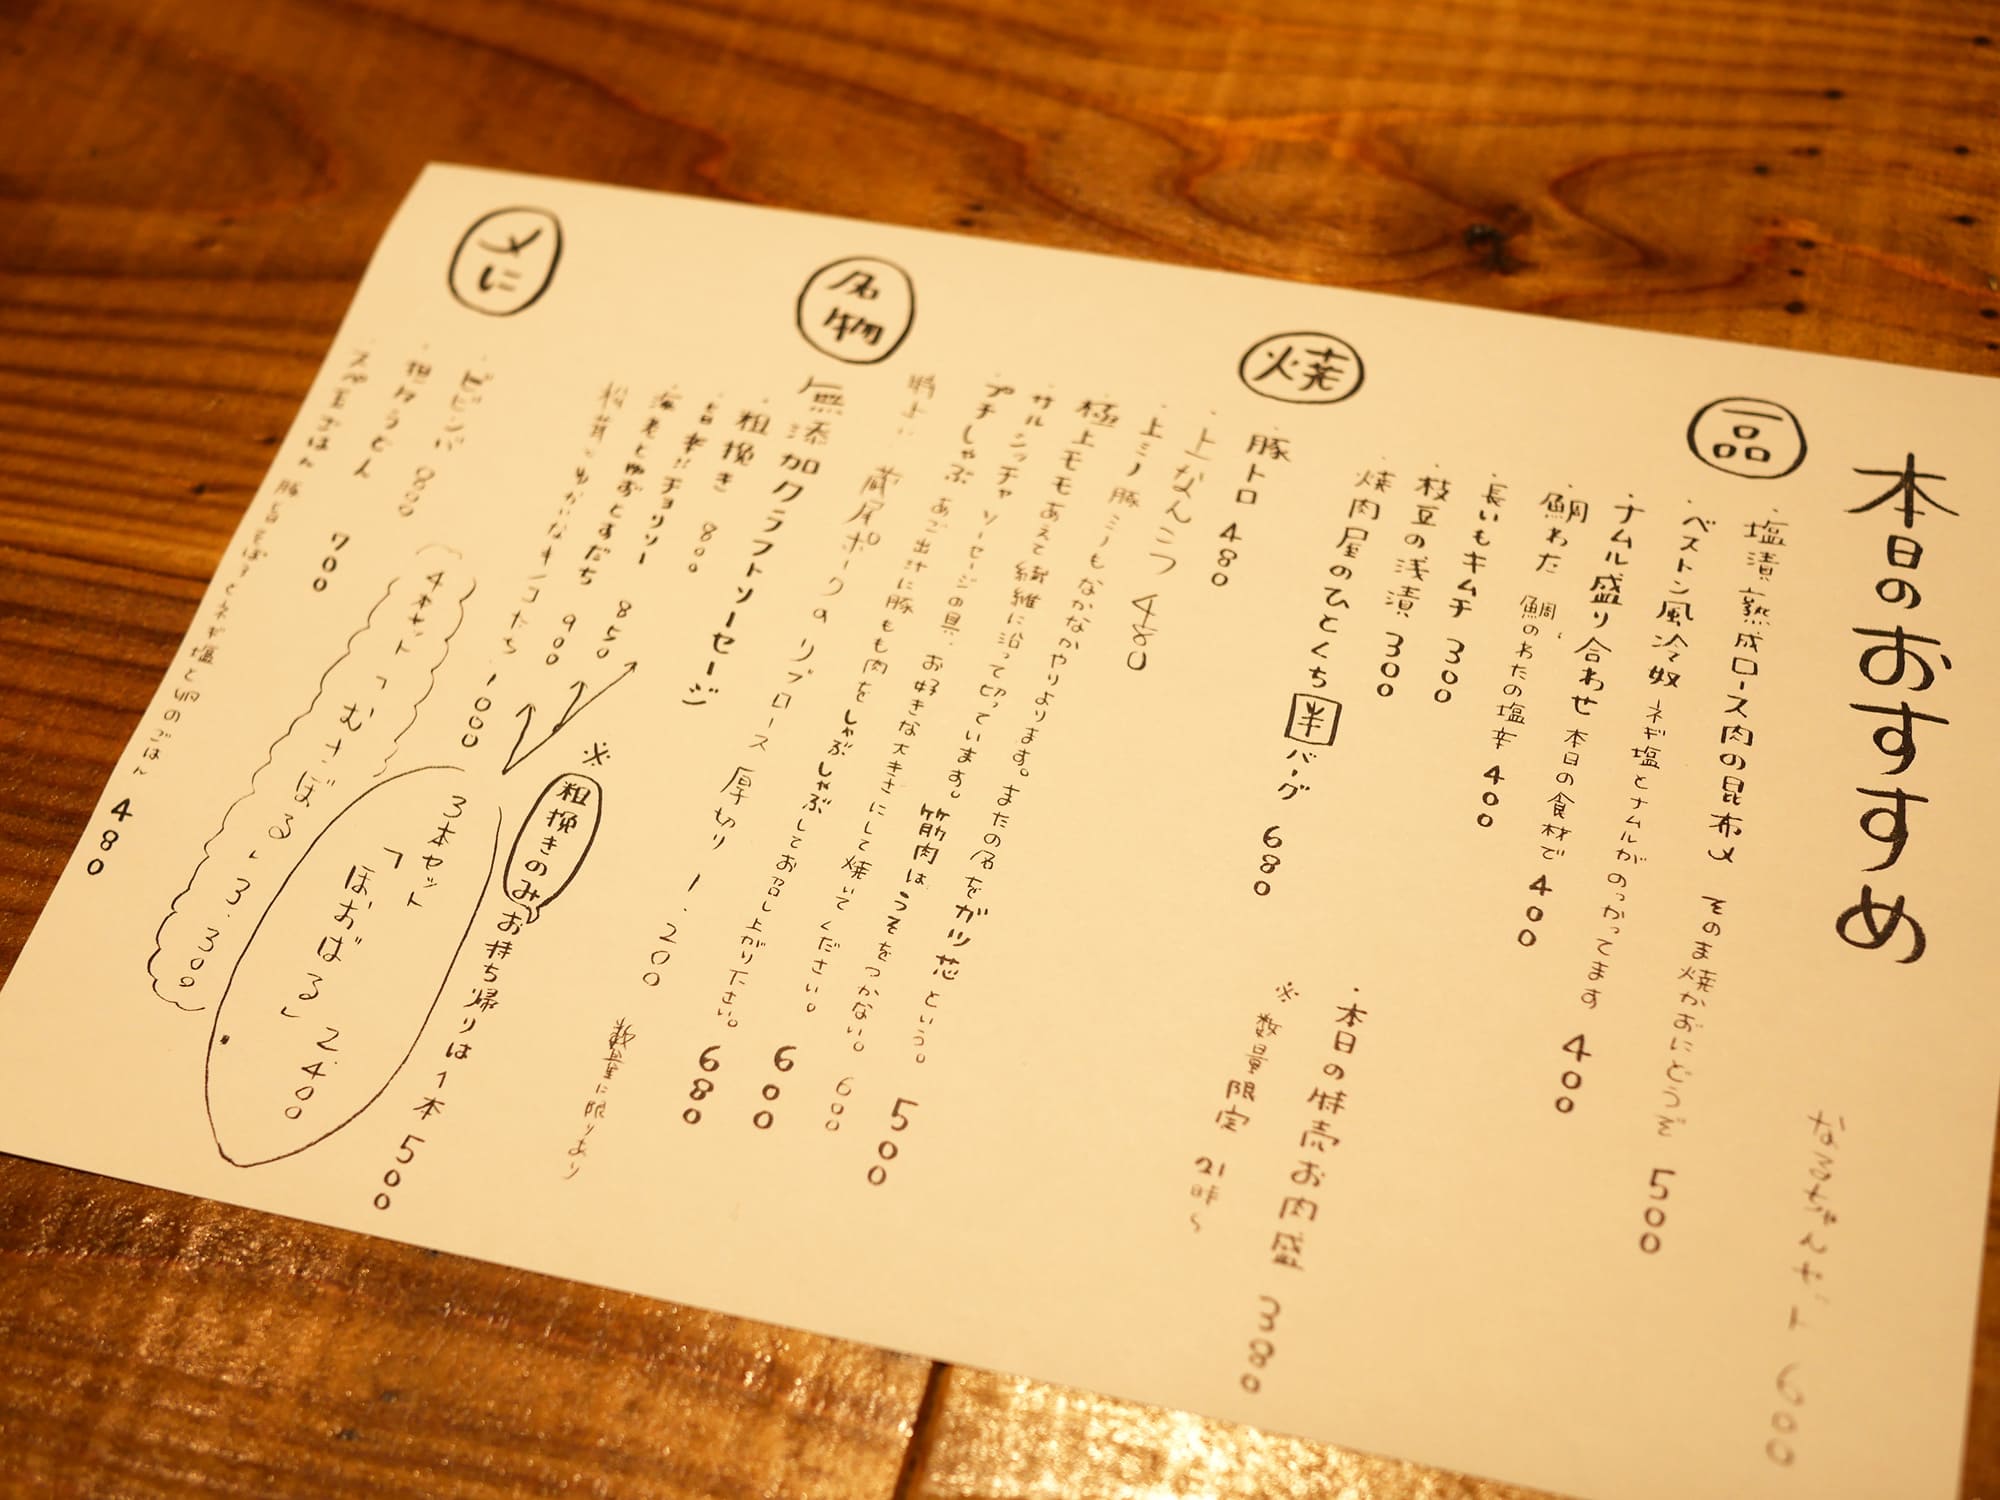 本日のおすすめ
一品
・塩漬け熟成ロース肉の昆布〆 そのまま焼かおにどうぞ
・ベストン風冷奴 ネギ塩とナムルがのっかってます 500
・ナムル盛り合わせ 本日の食材で 400
・鯛わた 鯛のわたの塩辛 400
・長いもキムチ 300
・枝豆の浅漬 300
・焼肉屋のひとくち半バーグ 680
焼
・豚トロ 480
・上なんこつ 480
・上ミノ 豚ミノもなかなかやりよります。またの名をガツ芯という。 500
・極上モモ あえて繊維に沿って切っています。筋肉はうそをつかない。 600
・サルシッチャ ソーセージの具。お好きな大きさにして焼いてください。 600
・プチしゃぶ あご出汁に豚もも肉をしゃぶしゃぶしてお召し上がり下さい。 680
・本日の特売お肉盛 380
※数量限定 21時〜
名物
蔵尾ポークのリブロース 厚切り 1.200 数量に限りあり
無添加クラフトソーセージ
・粗挽き 800
・旨辛!!チョリソー 850
・海老とゆずとすだち 900
1000
※粗挽きのみお持ち帰りは1本 500
3本セット
「ほおばる」 2.400
4本セット「むさぼる」 3.300
〆に
・ビビンバ 800
・担々うどん 700
480